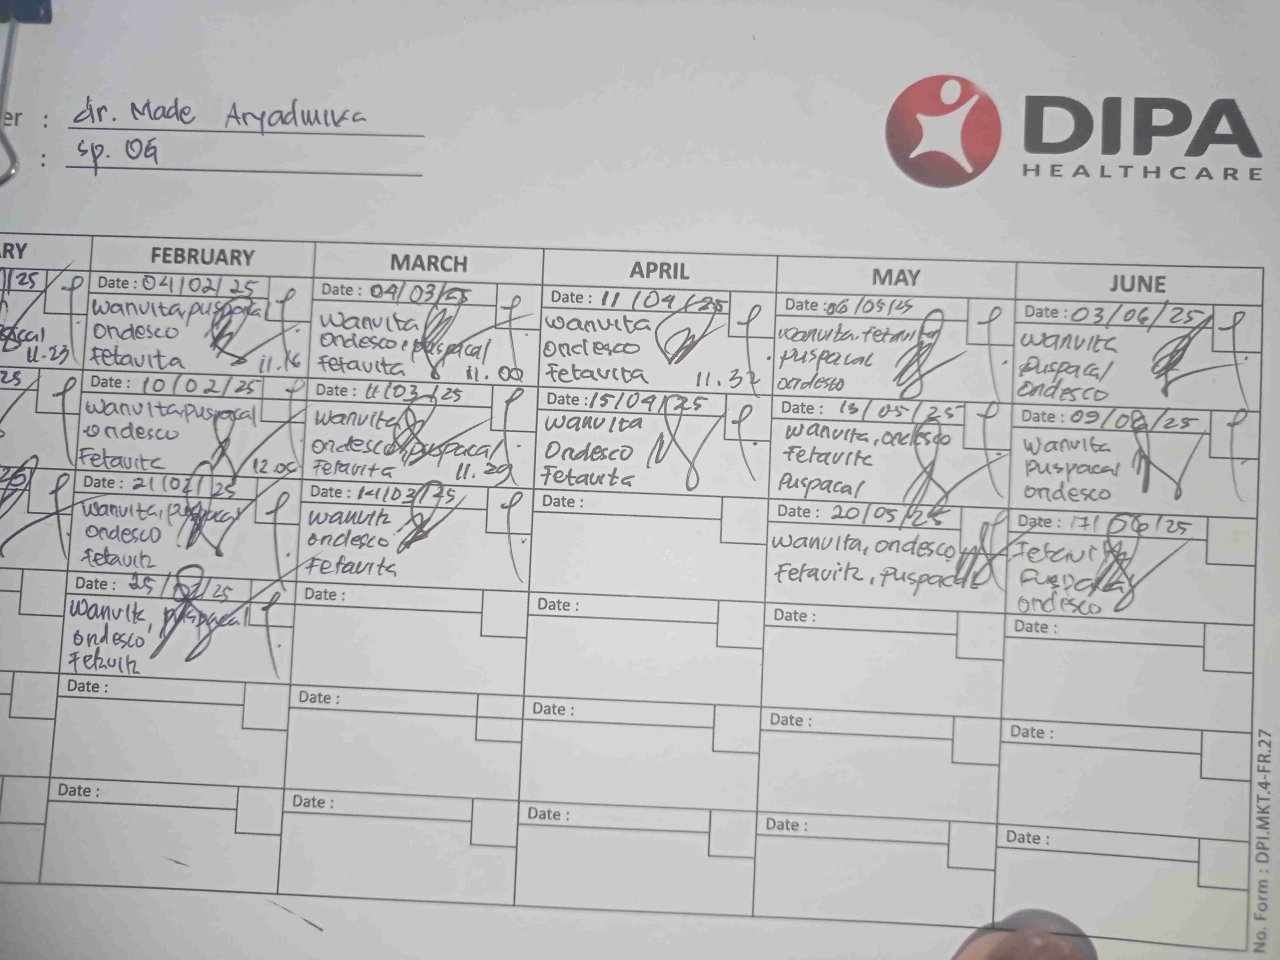 er : dr. Made Aryadwika
: sp. OG
DIPA
HEALTHCARE
RY FEBRUARY MARCH APRIL MAY JUNE
/25
11.23
Date : 04/02/25
wanvita, puspacal
ondesco
fetavita 11.16
Date : 04/03/25
wanvita
ondesco, puspacal
fetavita 11.00
Date : 11/04/25
wanvita
ondesco
fetavita 11.32
Date : 06/05/25
wanvita, fetavita
puspacal
ondesco
Date : 03/06/25
wanvita
puspacal
ondesco
25
Date : 10/02/25
wanvita, puspacal
ondesco
Fetavita 12.06
Date : 11/03/25
wanvita
ondesco, puspacal
Fetavita 11.29
Date : 15/04/25
wanvita
Ondesco
Fetavita
Date : 13/05/25
wanvita, ondesco
Fetavita
Puspacal
Date : 09/06/25
wanvita
puspacal
ondesco
Date : 21/02/25
wanvita, puspacal
ondesco
fetavita
Date : 14/03/25
wanvita
ondesco
Fetavita
Date :
Date : 20/05/25
wanvita, ondesco
Fetavita, puspacal
Date : 17/06/25
Fetavita
puspacal
ondesco
Date : 25/02/25
wanvita, puspacal
ondesco
Fetavita
Date :
Date :
Date :
Date :
Date :
Date :
Date :
Date :
Date :
Date :
Date :
Date :
Date :
Date :
No. Form : DPI.MKT.4-FR.27